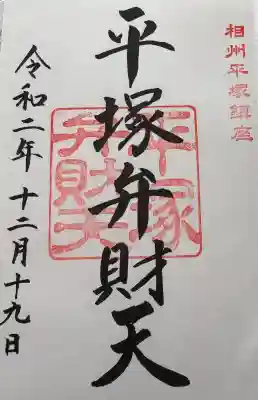 相州平塚鎮座
平塚弁財天
平塚
弁財天
令和二年十二月十九日